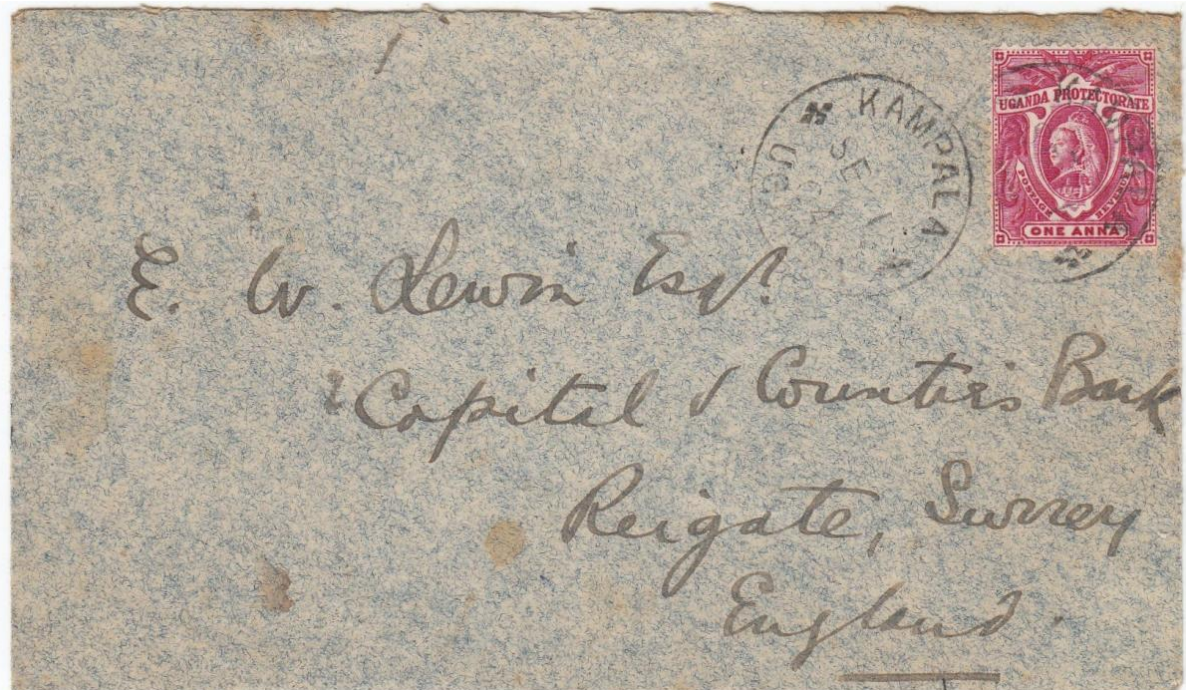 KAMPALA
SE 1
04
UG
UGANDA PROTECTORATE
POSTAGE REVENUE
ONE ANNA
E. W. Lewin Esqr.
Capital & Counties Bank
Reigate, Surrey
England.